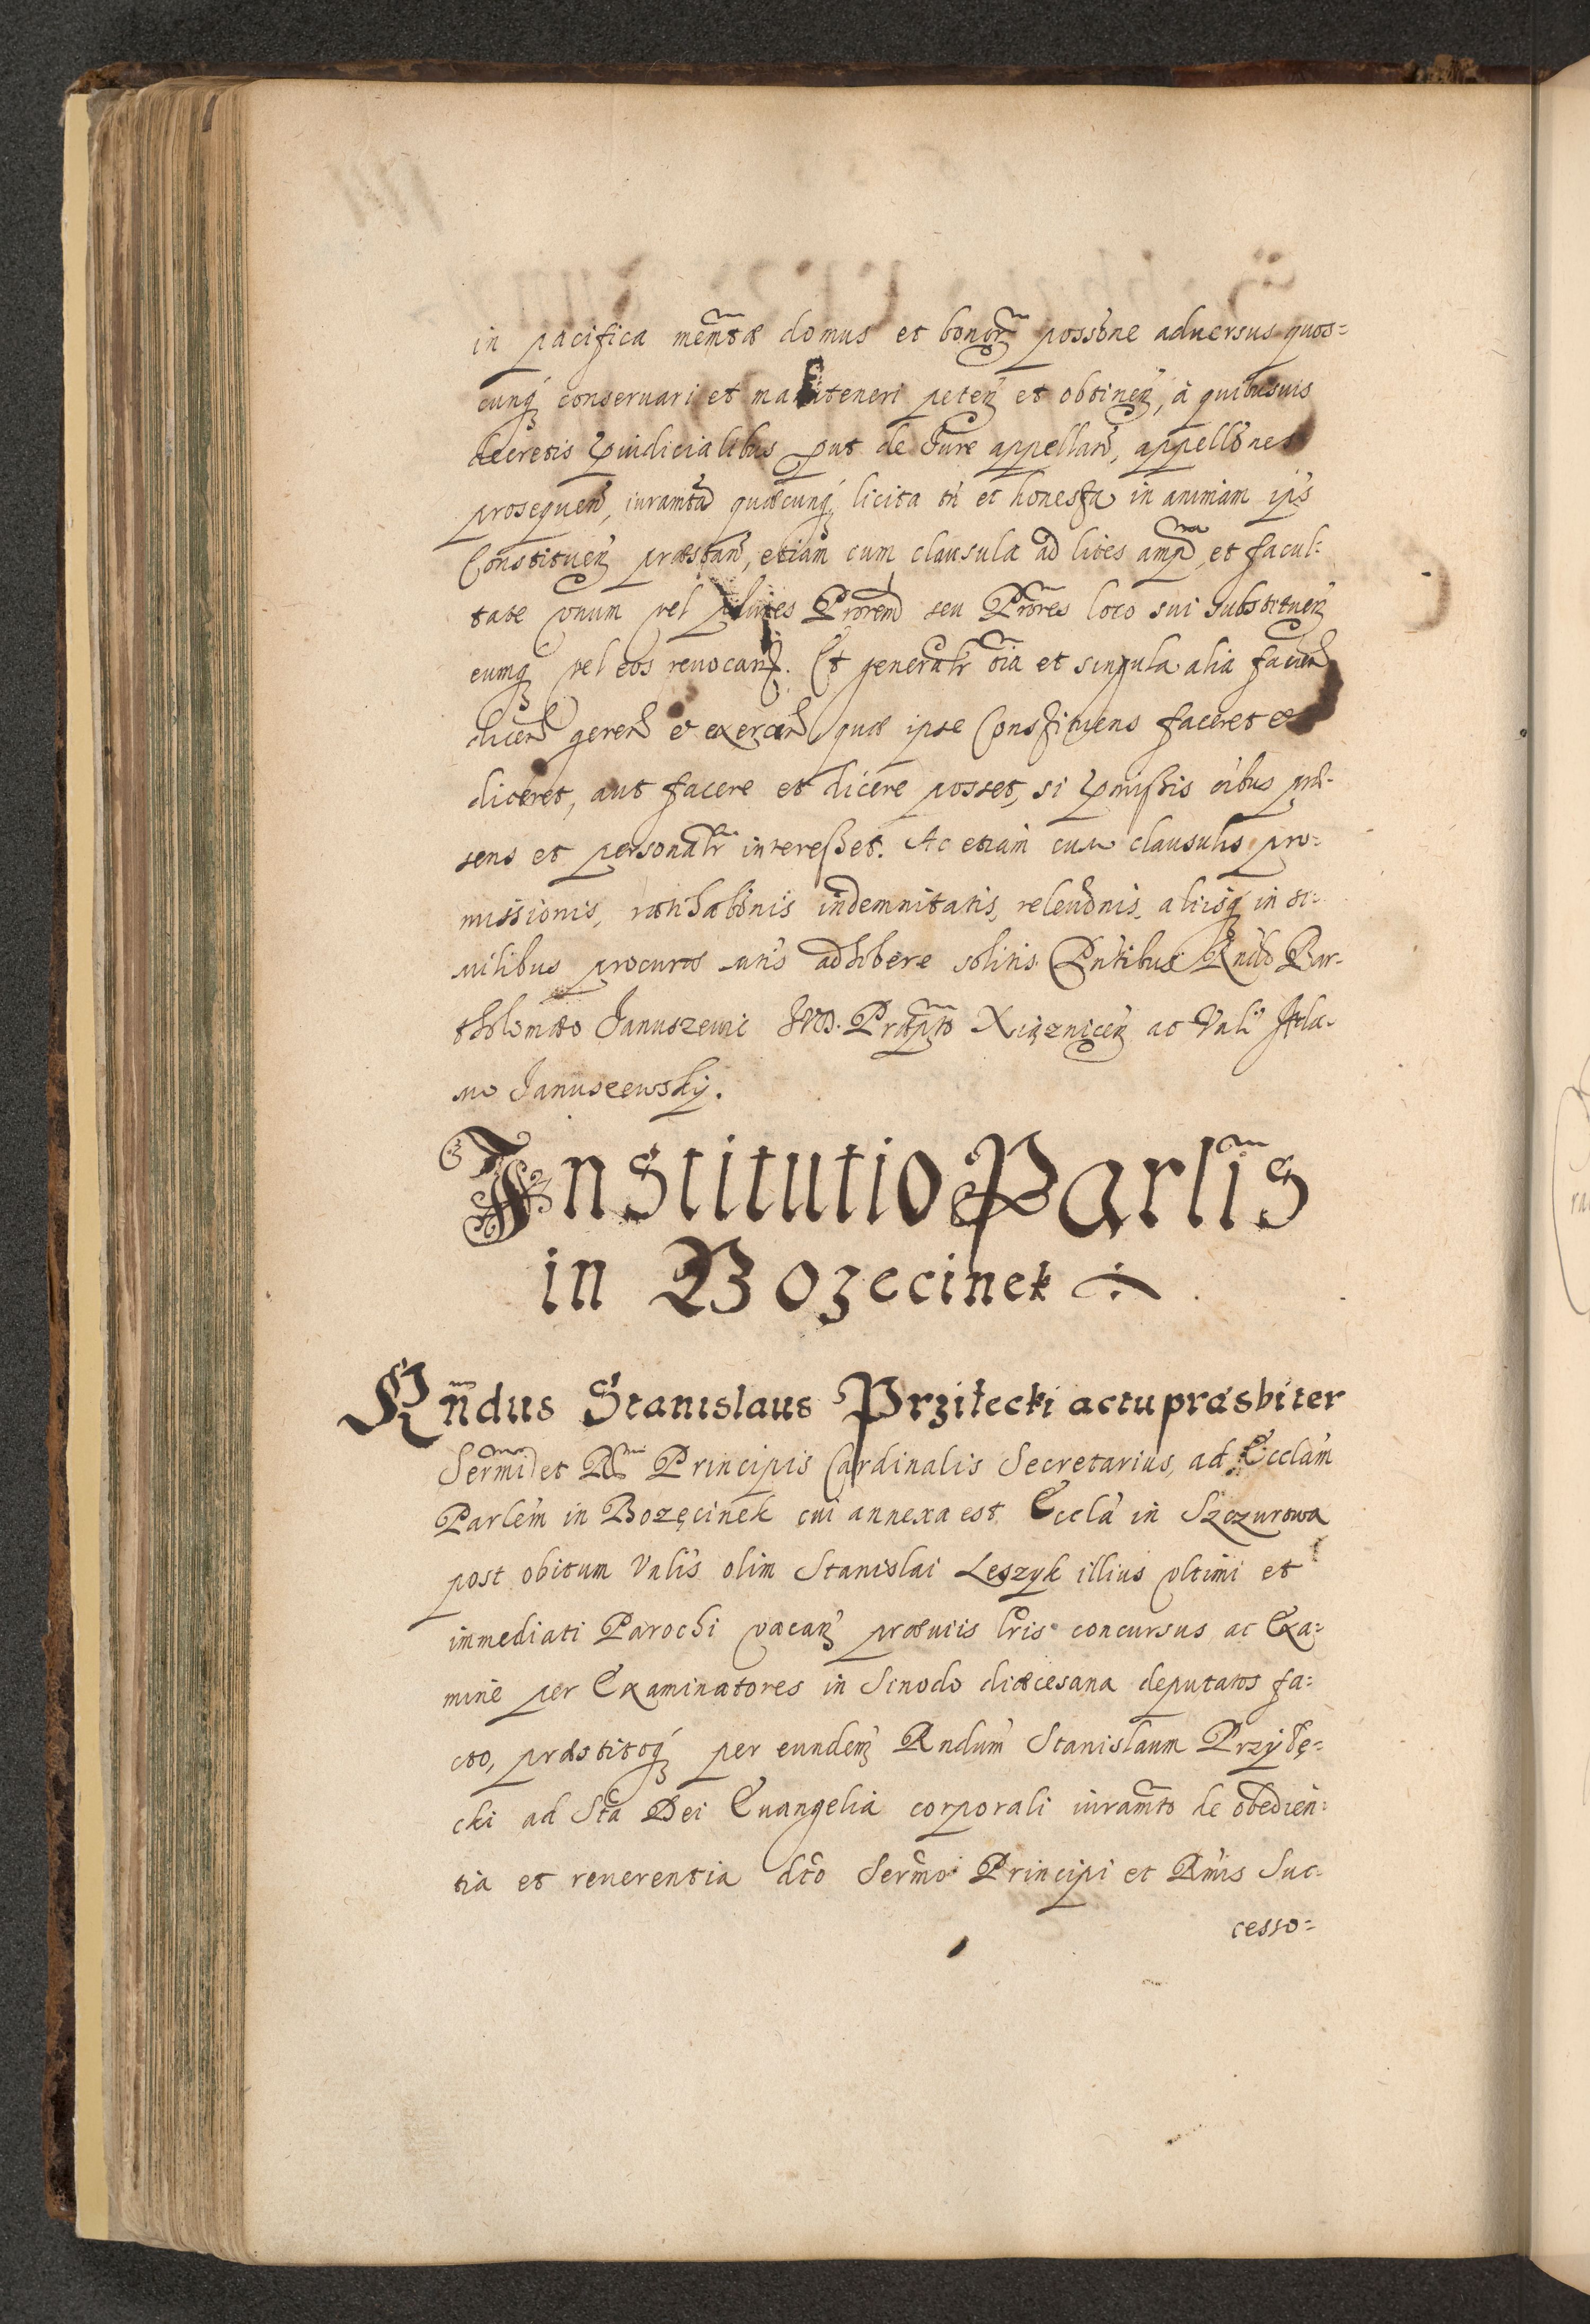 in pacifica memtæ domus et bonor possõne aduersus quos=
cunq conseruari et manuteneri peten et obtinen, à quibusuis
decretis pjudicialibus put de Jure appellan, appellõnes
prosequen, iuramta quæcunq licita tñ et honesta in animam ips
Constituen præstan, etiam cum clausula ad lites ampla, et facul:
tate vnum vel plures Prorem seu Prores loco sui substituen
eumq vel eos reuocan. Et generalr oia et singula alia facien
dicen geren et exercen quæ ipse Constituens faceret et
diceret, aut facere et dicere posset, si pmißis oibus præ-
sens et personalrintereßet. Ac etiam cum clausulis pro=
missionis, ratihabõnis indemnitatis, releuõnis, aliisq in si=
milibus procurat adhibere solitis. Pntibus Rndo Bar-
tholomæo Januszewic JVD. Præpto Xiąznicen ac Vali Ada-
mo Januszewskij.
Institutio Parlis
in Bozecinek
Rndus Stanislaus Przilecki actu præsbiter
Sermi et Rmi Principis Cardinalis Secretarius, ad Ecclam
Parlem in Bozęcinek cui annexa est Eccla in Szczurowa
post obitum Valis olim Stanislai Leszyk illius vltimi et
immediati Parochi vacan præuiis lris concursus ac Exa=
mine per Examinatores in Sinodo diæcesana deputatos fa=
cto, præstitoq per eundem Rndum Stanislaum Przyłę=
cki ad Sta Dei Euangelia corporali iuramto de obedien=
tia et reuerentia dco Sermo Principi et Rmis Suc-
cesso=